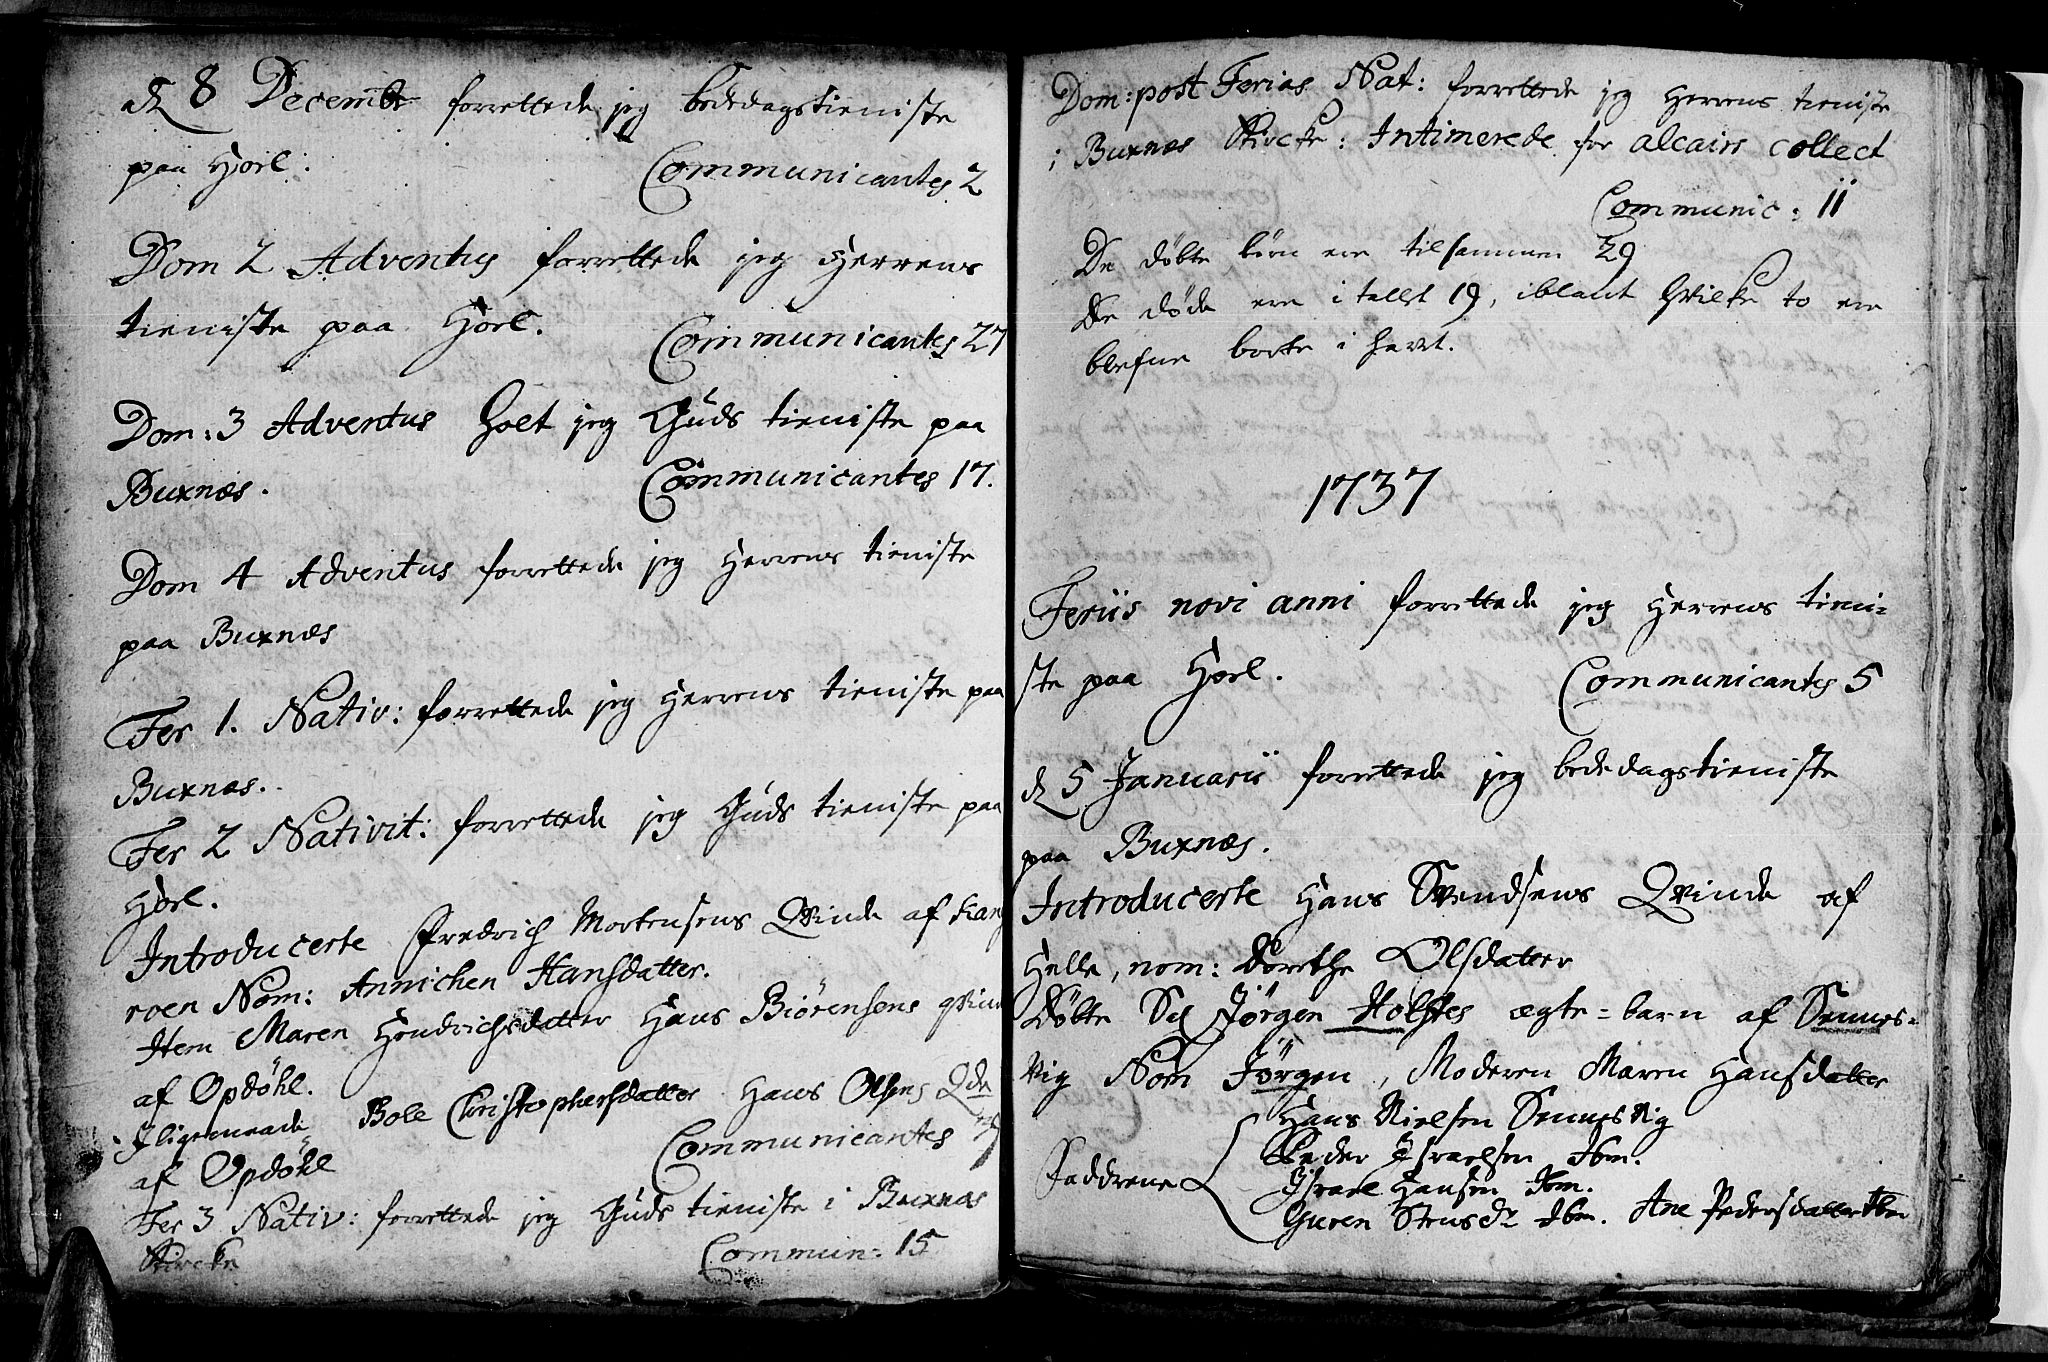 d 8 Decembr forrettede jeg bededagstieniste
paa Hoel: Communicantes 2
Dom 2 Adventus forrettede jeg Herrens
tieniste paa Hoel. Communicantes 27
Dom: 3 Adventus holt jeg Guds tieniste paa
Buxnæs. Communicantes 17.
Dom 4 Adventus forrettede jeg Herrens tieniste
paa Buxnæs
Fer 1. Nativ: forrettede jeg Herrens tieniste paa
Buxnæs.
Fer 2 Nativit: forrettede jeg Guds tieniste paa
Hoel.
Introducerte Fredrich Mortensens Qvinde af
roen Nom: Annichen Hansdatter.
Item Maren Hendrichsdatter Hans Biörensens
af Opdöhl.
iligemaade Bole Christophersdatter Hans Olsens Qde
af Opdöhl Communicantes
Fer 3 Nativ: forrettede jeg Guds tieniste i Buxnæs
Kircke Commun: 15
Dom: post Ferias Nat: forrettede jeg Herrens tieniste
i Buxnæs Kircke: Intimerede for alcairs collect
Communic: 11
De döbte börn ere tilsammen 29
De döde ere i tallet 19, iblant hvilke to ere
blefne borte i havet.
1737
Feriis novi anni forrettede jeg Herrens tieni-
ste paa Hoel. Communicantes 5
d 5 Januarii forrettede jeg bededagstieniste
paa Buxnæs.
Introducerte Hans Svendsens Qvinde af
Helle, nom: Dorethe Olsdatter
Döbte Sl Jörgen Holstes ægte-barn af Sennes-
vig Nom Jörgen, Moderen Maren Hansdatter
Hans Nielsen Sennesvig
Faddrene Peder Israelsen Ibm.
Israel Hansen Ibm.
Guren Stensdr Ibm. Ane Pedersdatter Ibm